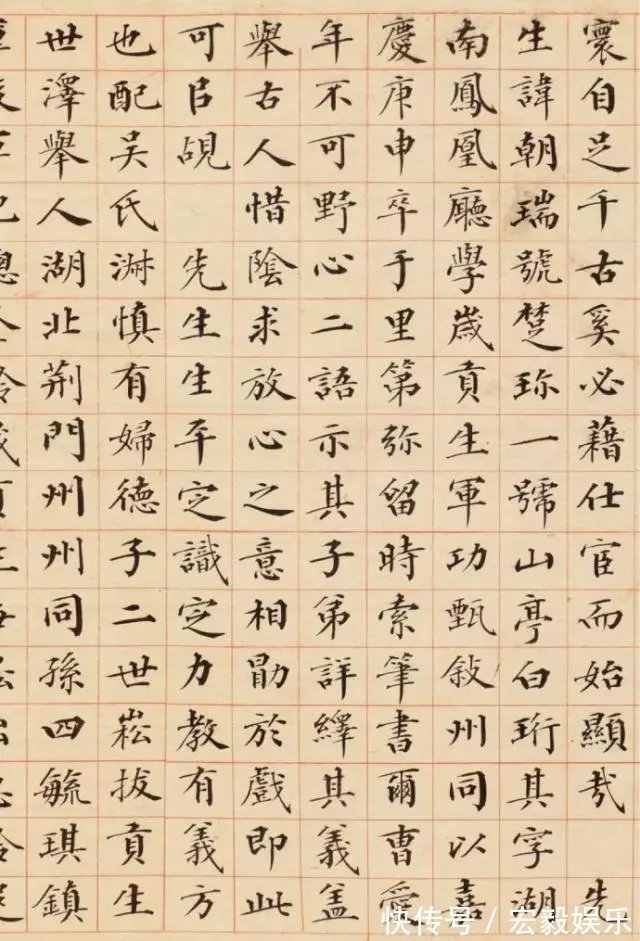 寰自足千古奚必藉仕宦而始顯哉 先
生諱朝瑞號楚珎一號山亭白珩其字湖
南鳳凰廳學歲貢生軍功甄敘州同以嘉
慶庚申卒于里第弥留時索筆書爾曹愛
年不可野心二語示其子弟詳繹其義盖
舉古人惜陰求放心之意相勖於戲即此
可㠯覘 先生生平定識定力教有義方
也配吴氏淑慎有婦德子二世崧拔貢生
世澤舉人湖北荆門州州同孫四毓琪鎮
快传号／宏毅娱乐